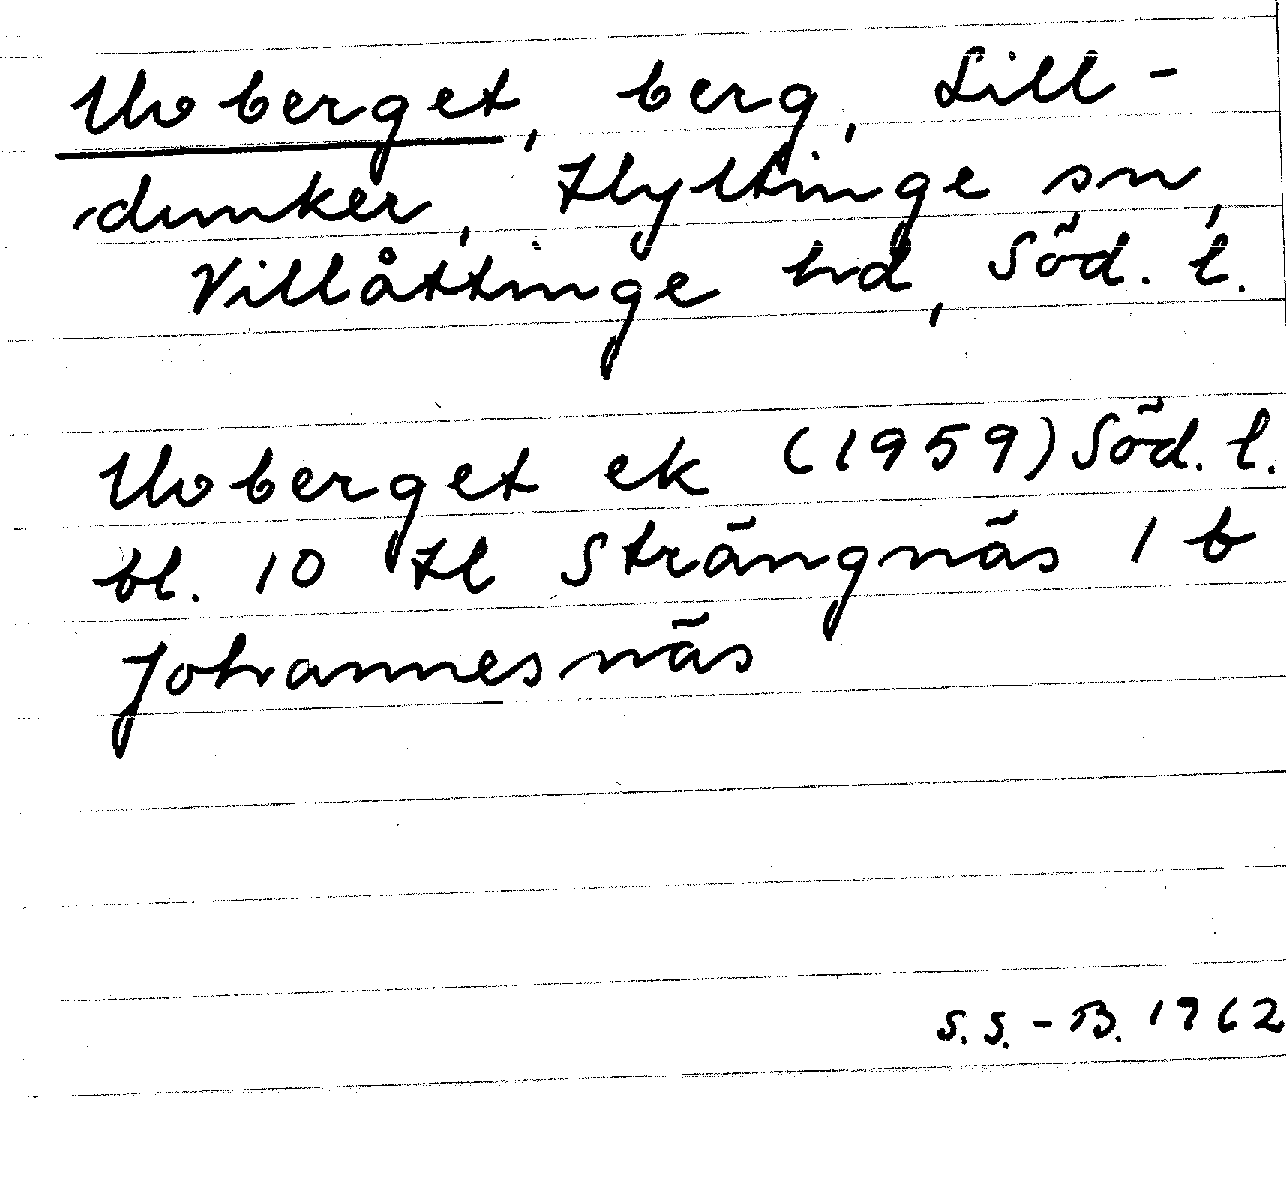 Uvberget, berg, Lill-
dunker, Hyltinge sn,
Villåttinge hd, Söd. l.
Uvberget ek (1959) Söd. l.
bl. 10 H l Strängnäs 1 b
Johannesnäs
S.S.-B. 1962